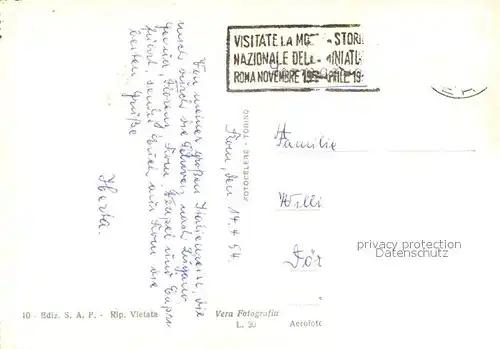 VISITATE LA MO STOR
NAZIONALE DEL MINIATU
ROMA NOVEMBRE 195 APRILE 19
Rom, den 14.4.54.
Von meiner großen Italienreise, die
mich durch die Schweiz nach Lugano
Genua, Florenz, Rom, Neapel und Capri
führt, sendet Euch aus Rom die
besten Grüße
Herta.
FOTOCELERE - TORINO
Familie
Willi
Dör
privacy protection
ANSICHTSKARTEN-CENTER.DE
10 - Ediz. S. A. P. - Rip. Vietata
Vera Fotografia
L. 30
Aerofoto